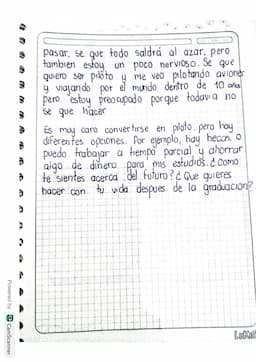 pasar, se que todo saldrá al azar, pero
tambien estoy un poco nervioso. Se que
quiero ser piloto y me veo pilotando aviones
y viajando por el mundo dentro de 10 años
pero estoy preocupado porque todavia no
se que hacer
Es muy caro convertirse en piloto, pero hay
diferentes opciones. Por ejemplo, hay becas, o
puedo trabajar a tiempo parcial y ahorrar
algo de dinero para mis estudios. ¿Como
te sientes acerca del futuro? ¿Que quieres
hacer con tu vida despues de la graduacion?
Powered by CamScanner